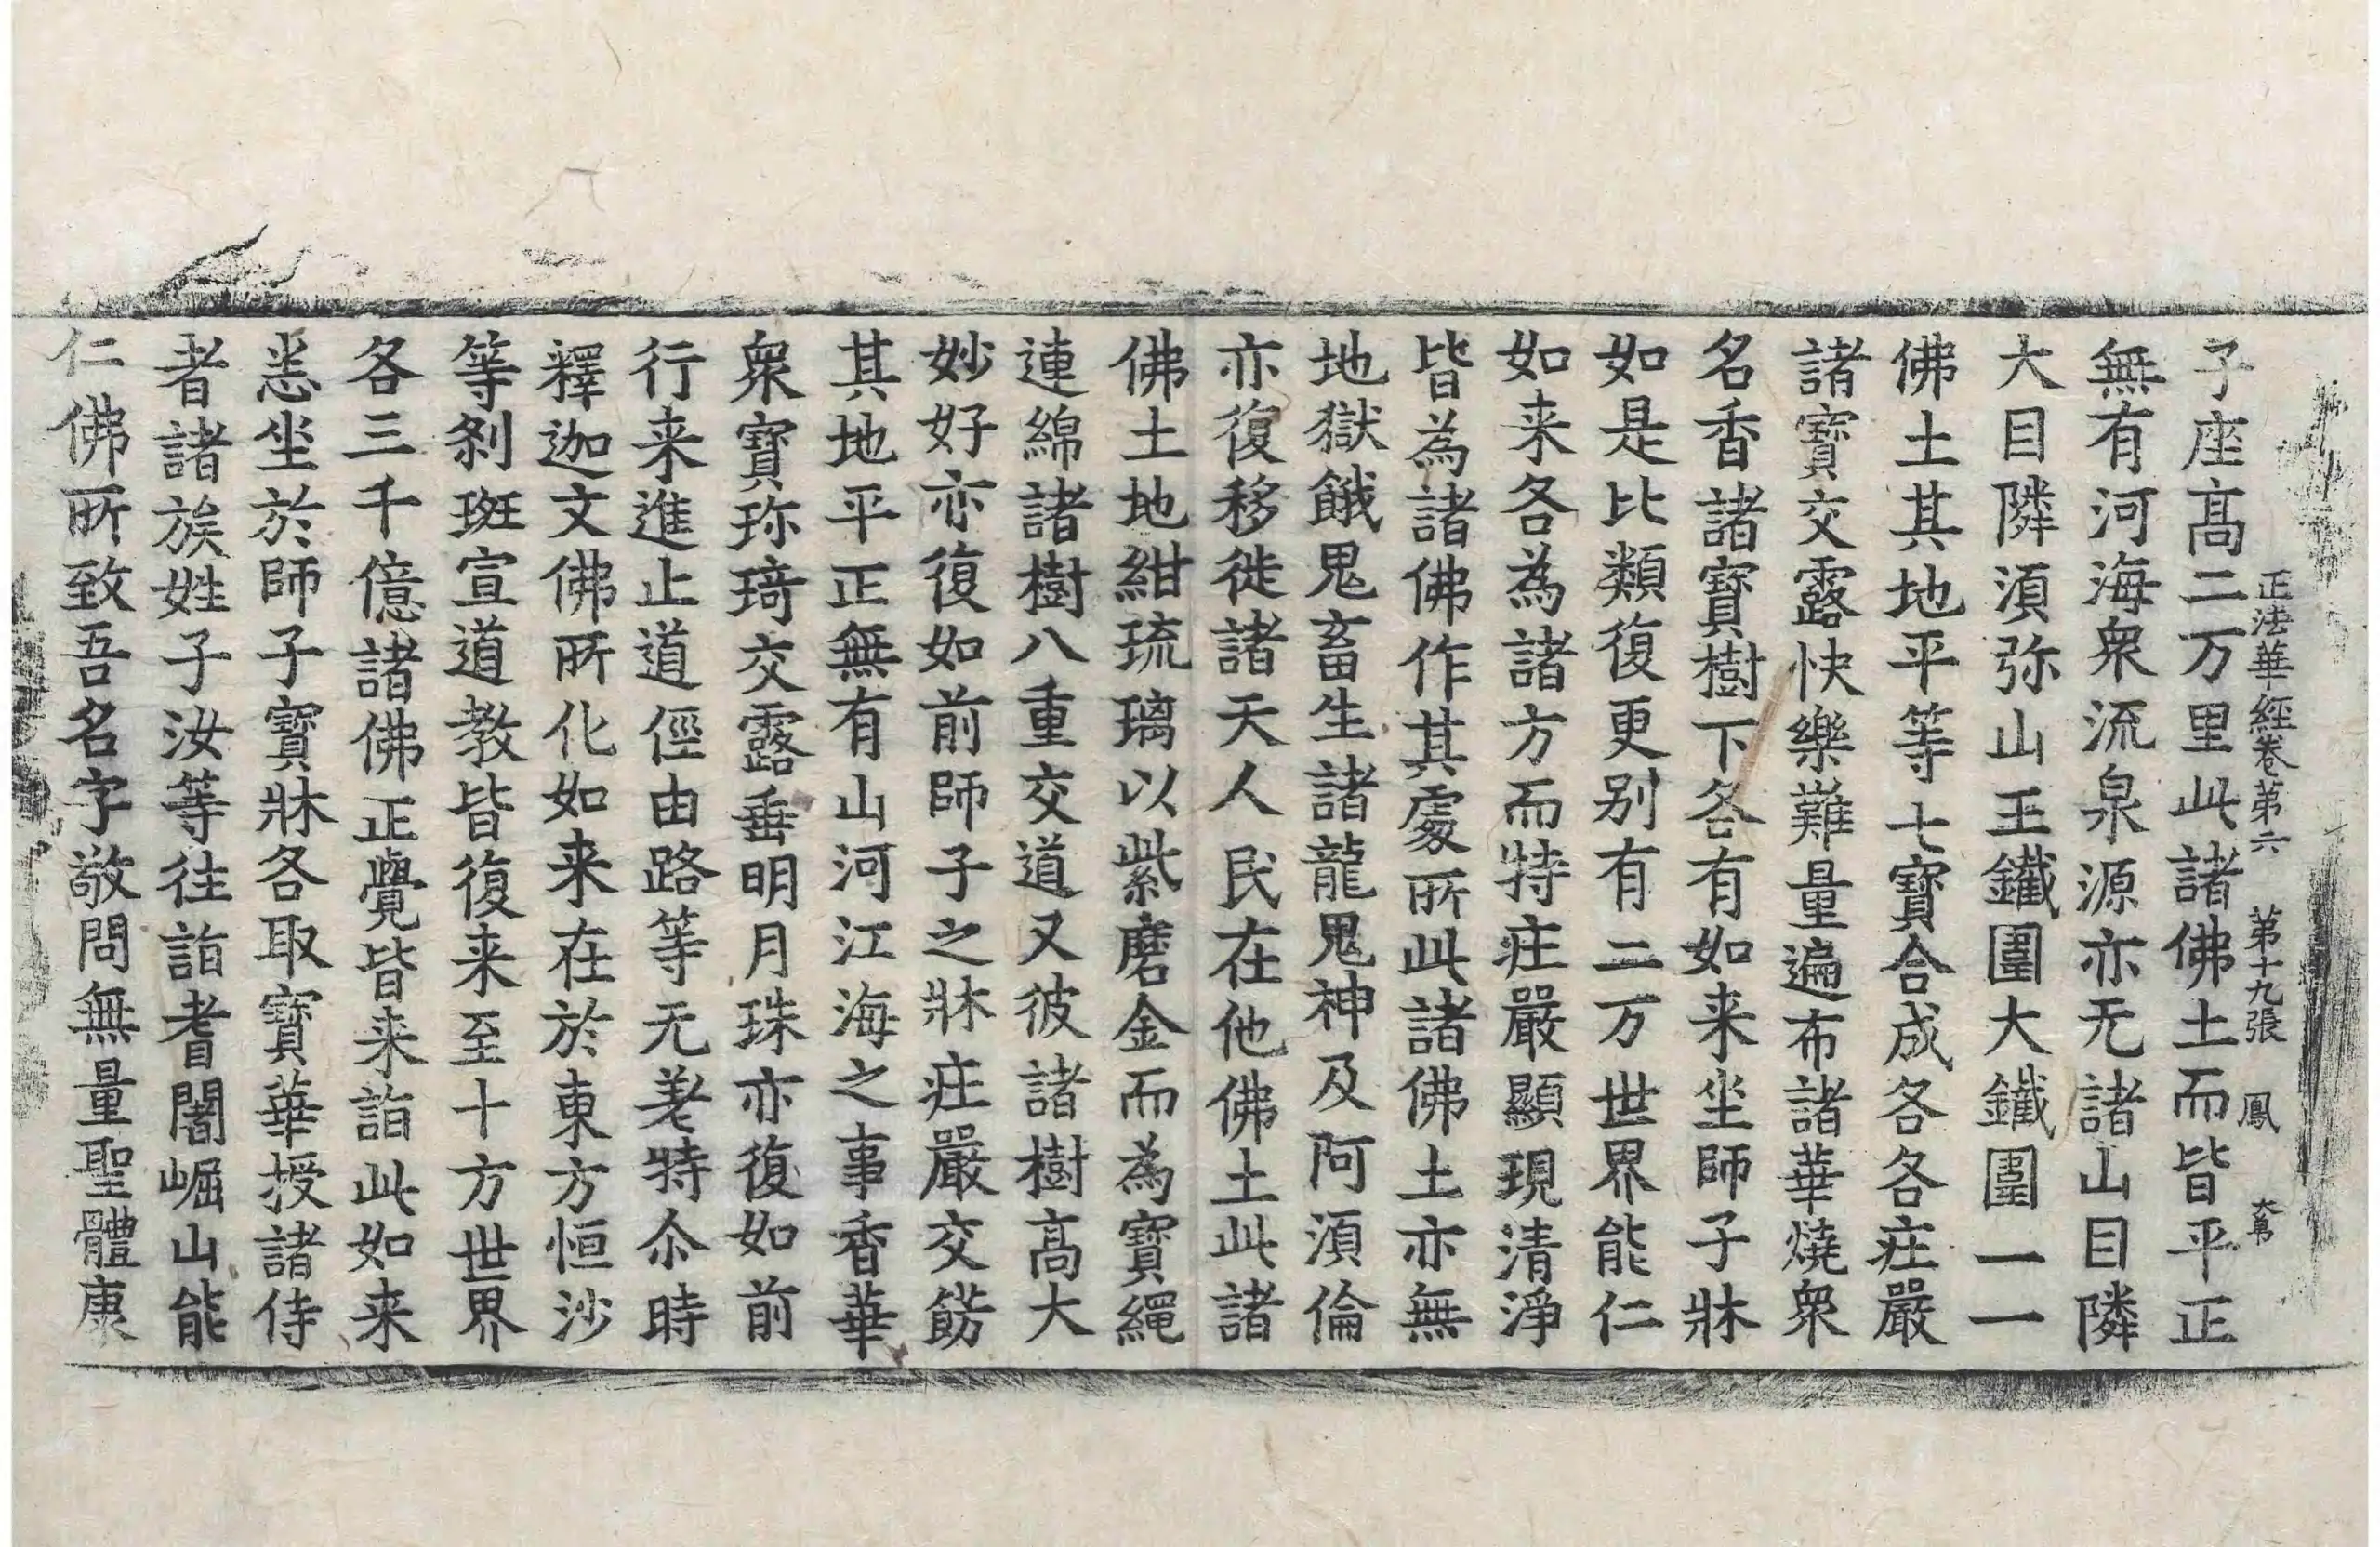 正法華經卷第六 第十九張 鳳
子座髙二万里此諸佛土而皆平正
無有河海衆流泉源亦无諸山目隣
大目隣湏弥山王鐵圍大鐵圍一一
佛土其地平等七寶合成各各庄嚴
諸寶交露快樂難量遍布諸華燒衆
名香諸寶樹下各有如来坐師子牀
如是比類復更别有二万世界能仁
如来各為諸方而特庄嚴顯現清淨
皆為諸佛作其處所此諸佛土亦無
地獄餓鬼畜生諸龍鬼神及阿湏倫
亦復移徙諸天人民在他佛土此諸
佛土地紺琉璃以紫磨金而為寶繩
連綿諸樹八重交道又彼諸樹髙大
妙好亦復如前師子之牀庄嚴交餝
其地平正無有山河江海之事香華
衆寶珎琦交露垂明月珠亦復如前
行来進止道俓由路等无差特尒時
釋迦文佛所化如来在於東方恒沙
等刹班宣道教皆復来至十方世界
各三千億諸佛正覺皆来詣此如来
悉坐於師子寶牀各取寶華授諸侍
者諸族姓子汝等往詣耆闍崛山能
仁佛所致吾名字敬問無量聖體康